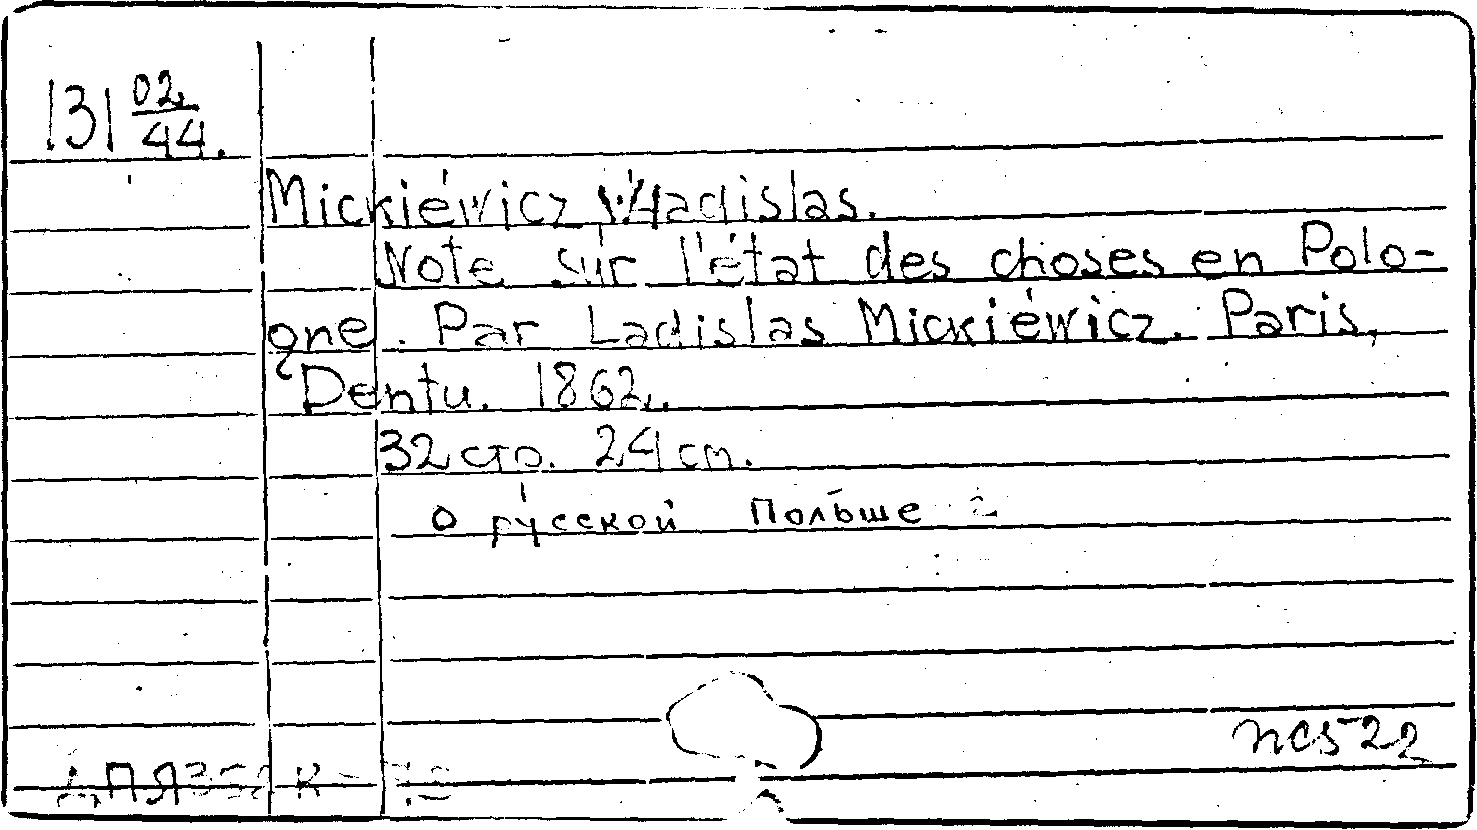 131 02/44.
Mickiéwicz Wladislas.
Note sur l'état des choses en Polo-
gne. Par Ladislas Mickiéwicz. Paris,
Dentu. 1862.
32 стр. 24 cm.
о русской Польше
пс522